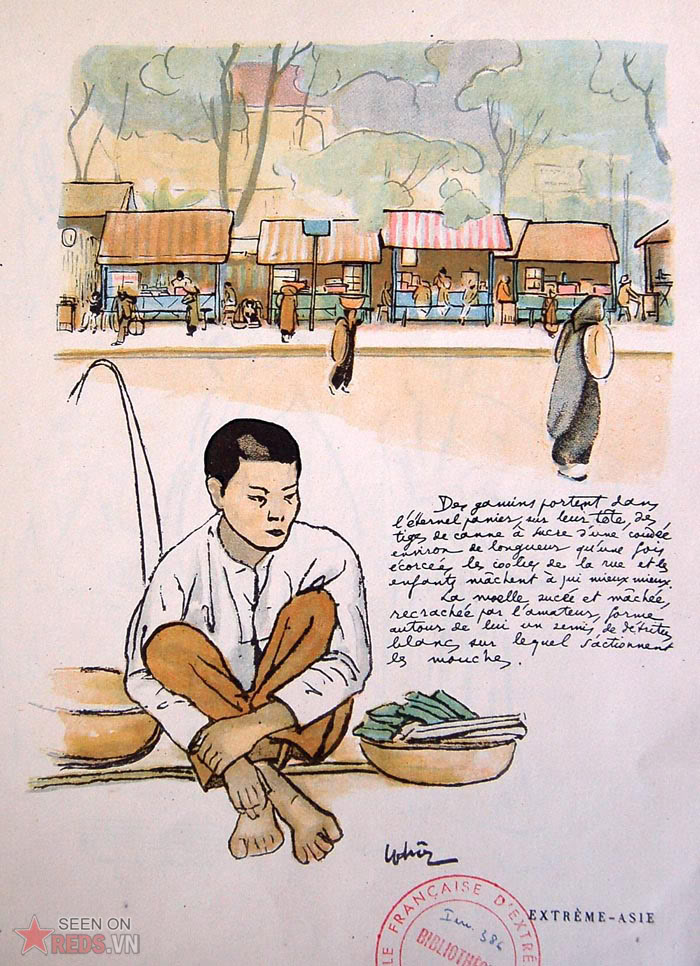 Des gamins portent dans
l'éternel panier, sur leur tête, des
tiges de canne à sucre d'une coudée
environ de longueur qu'une fois
écorcées les coolies de la rue et les
enfants mâchent à qui mieux mieux.
La moelle sucée et mâchée,
recrachée par l'amateur, forme
autour de lui un semis de détritus
blancs sur lequel s'actionnent
les mouches.
EXTRÊME-ASIE
LE FRANÇAISE D'EXTRÊ
386
BIBLIOTHÈ
SEEN ON
REDS.VN